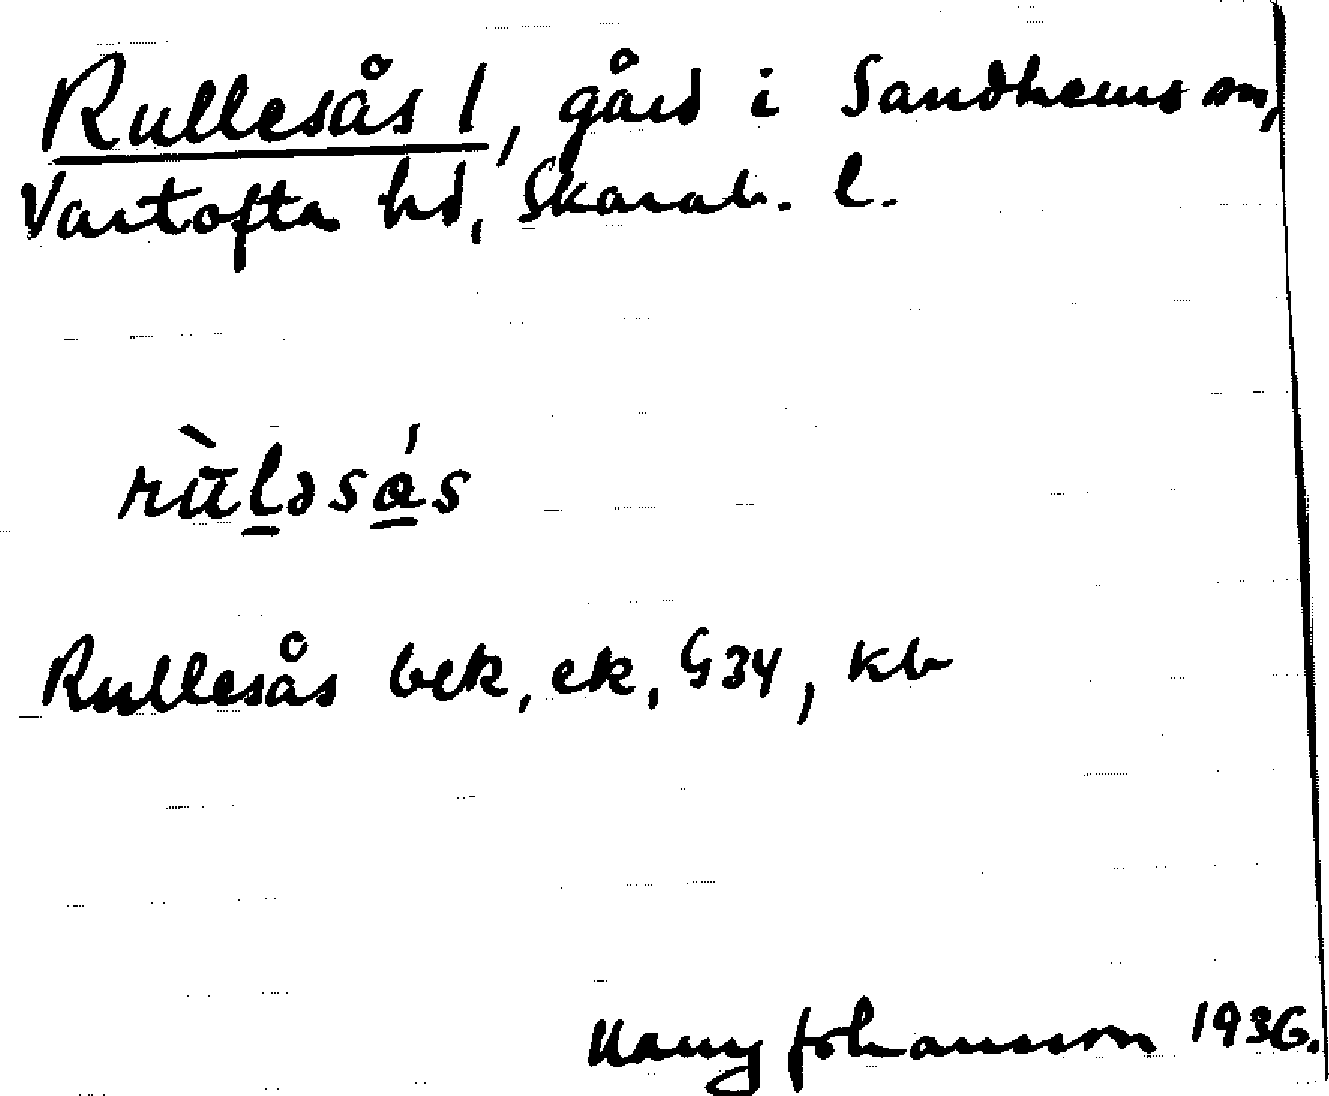 Rullesås 1, gård i Sandhems sn,
Vartofta hd, Skarab. l.
rù̄l̲əsǻ̲s
Rullesås bek, ek, G34, kb
Harry Johansson 1936.